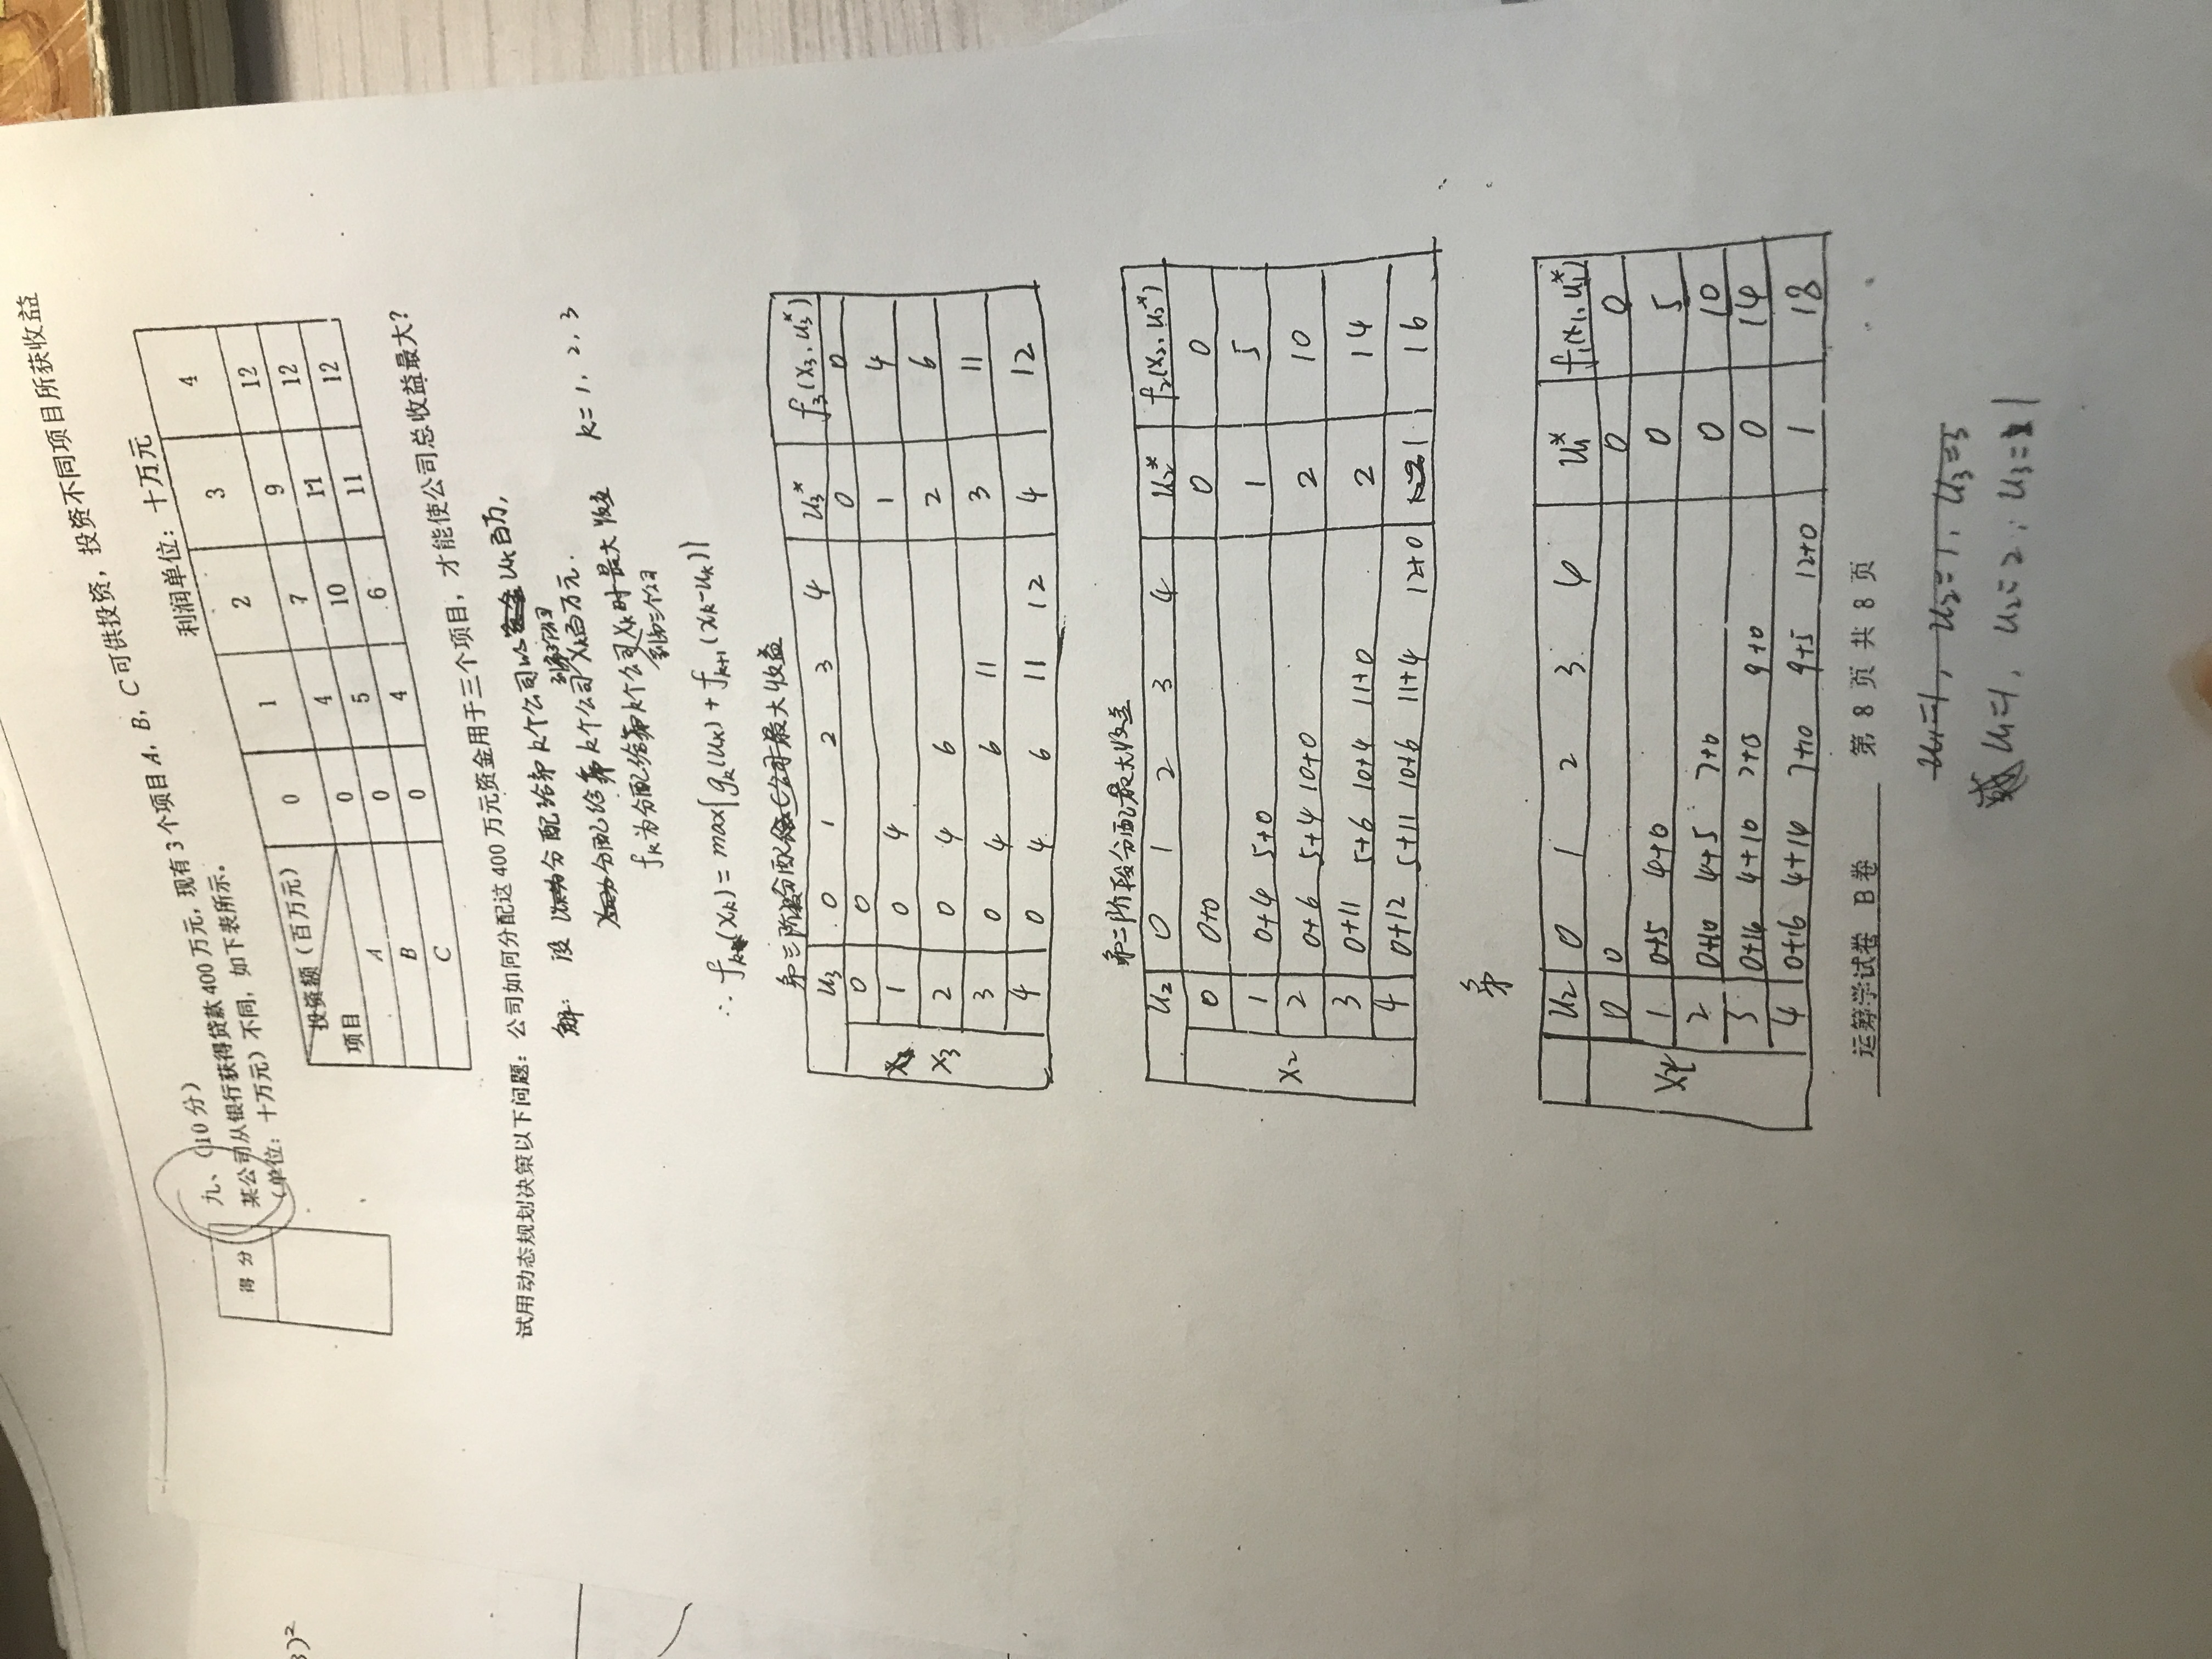 3)²
得 分
九、(10 分)
某公司从银行获得贷款 400 万元，现有 3 个项目 A，B，C 可供投资，投资不同项目所获收益
（单位：十万元）不同，如下表所示。
利润单位：十万元
投资额（百万元） 0 1 2 3 4
项目
A 0 4 7 9 12
B 0 5 10 11 12
C 0 4 6 11 12
试用动态规划决策以下问题：公司如何分配这 400 万元资金用于三个项目，才能使公司总收益最大？
解: 设 分配给第k个公司 uk百万,
到第3个公司
分配给第k个公司 xk百万元.
fk为分配给第k个公司xk时最大收益 k=1, 2, 3
到第三个公司
∴ fk(xk)=max{gk(uk)+fk+1(xk-uk)}
第三阶段分配最大收益
u3 0 1 2 3 4 u3* f3(x3, u3*)
0 0 0 0
1 0 4 1 4
x3 2 0 4 6 2 6
3 0 4 6 11 3 11
4 0 4 6 11 12 4 12
第二阶段分配最大收益
u2 0 1 2 3 4 u2* f2(x2, u2*)
0 0+0 0 0
1 0+4 5+0 1 5
x2 2 0+6 5+4 10+0 2 10
3 0+11 5+6 10+4 11+0 2 14
4 0+12 5+11 10+6 11+4 12+0 1 16
第
u2 0 1 2 3 4 u1* f1(x1, u1*)
0 0 0 0
1 0+5 4+0 0 5
2 0+10 4+5 7+0 0 10
3 0+14 4+10 7+5 9+0 0 14
4 0+16 4+14 7+10 9+5 12+0 1 18
运筹学试卷 B 卷 第 8 页 共 8 页
u1=1, u2=1, u3=3
u1=1, u2=2, u3=1